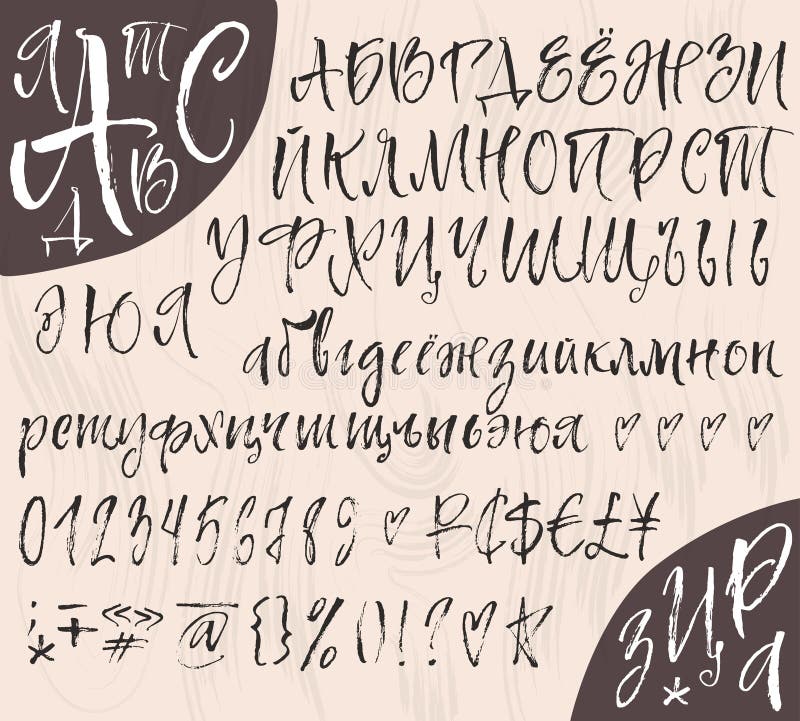 Я т
А С
Д В
АБВГДЕЁЖЗИ
ЙКЛМНОПРСТ
УФХЦЧШЩЪЫЬ
ЭЮЯ
абвгдеёжзийклмноп
рстуфхцчшщъыьэюя ♡ ♡ ♡ ♡
0123456789 ♡ ₽₵$€£¥
; * ∓ «» # @ {} % () ! ? ♡ ☆
з Ц Р
* а